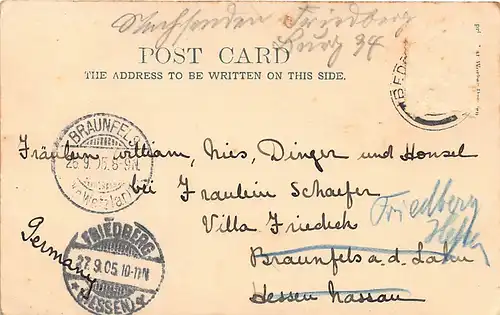 Nachsenden Friedberg
Burg 34
POST CARD
THE ADDRESS TO BE WRITTEN ON THIS SIDE.
BRAUNFELS
26.9.05.
Fräulein William, Nies, Dinger und Honsel
bei Fraulein Schaefer
Villa Friedeck
Friedberg
Hessen
Braunfels a.d. Lahn
Hessen Nassau
Germany
FRIEDBERG
27.9.05.10-11N
*(HESSEN)*
BEDF